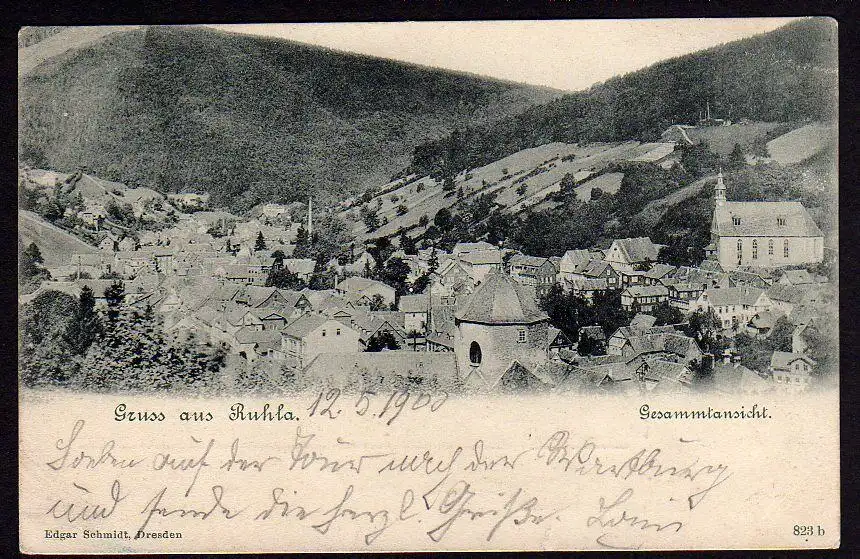 Gruss aus Ruhla. 12.5.1900
Gesammtansicht.
Soeben auf der Tour nach der Wartburg
und sende die herzl. Grüße.
Edgar Schmidt, Dresden
823 b